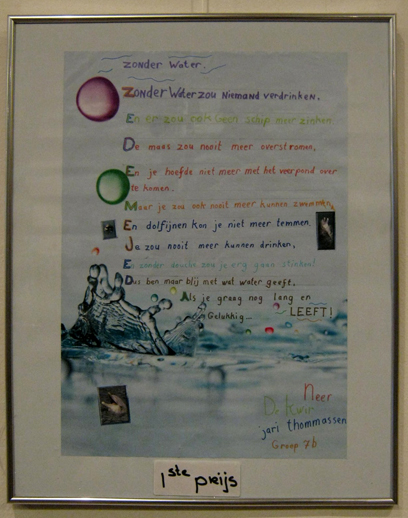 Zonder Water.
Zonder Water zou Niemand verdrinken.
En er zou ook geen schip meer zinken
De maas zou nooit meer overstromen,
En je hoefde niet meer met het veerpond over
te komen.
Maar je zou ook nooit meer kunnen zwemmen,
En dolfijnen kon je niet meer temmen
Ja zou nooit meer kunnen drinken,
En zonder douche zou je erg gaan stinken!
Dus ben maar blij met wat water geeft,
Als je graag nog lang en
Gelukkig... LEEFT!
Neer
De Kwir
jari thommassen
Groep 7b
1ste prijs